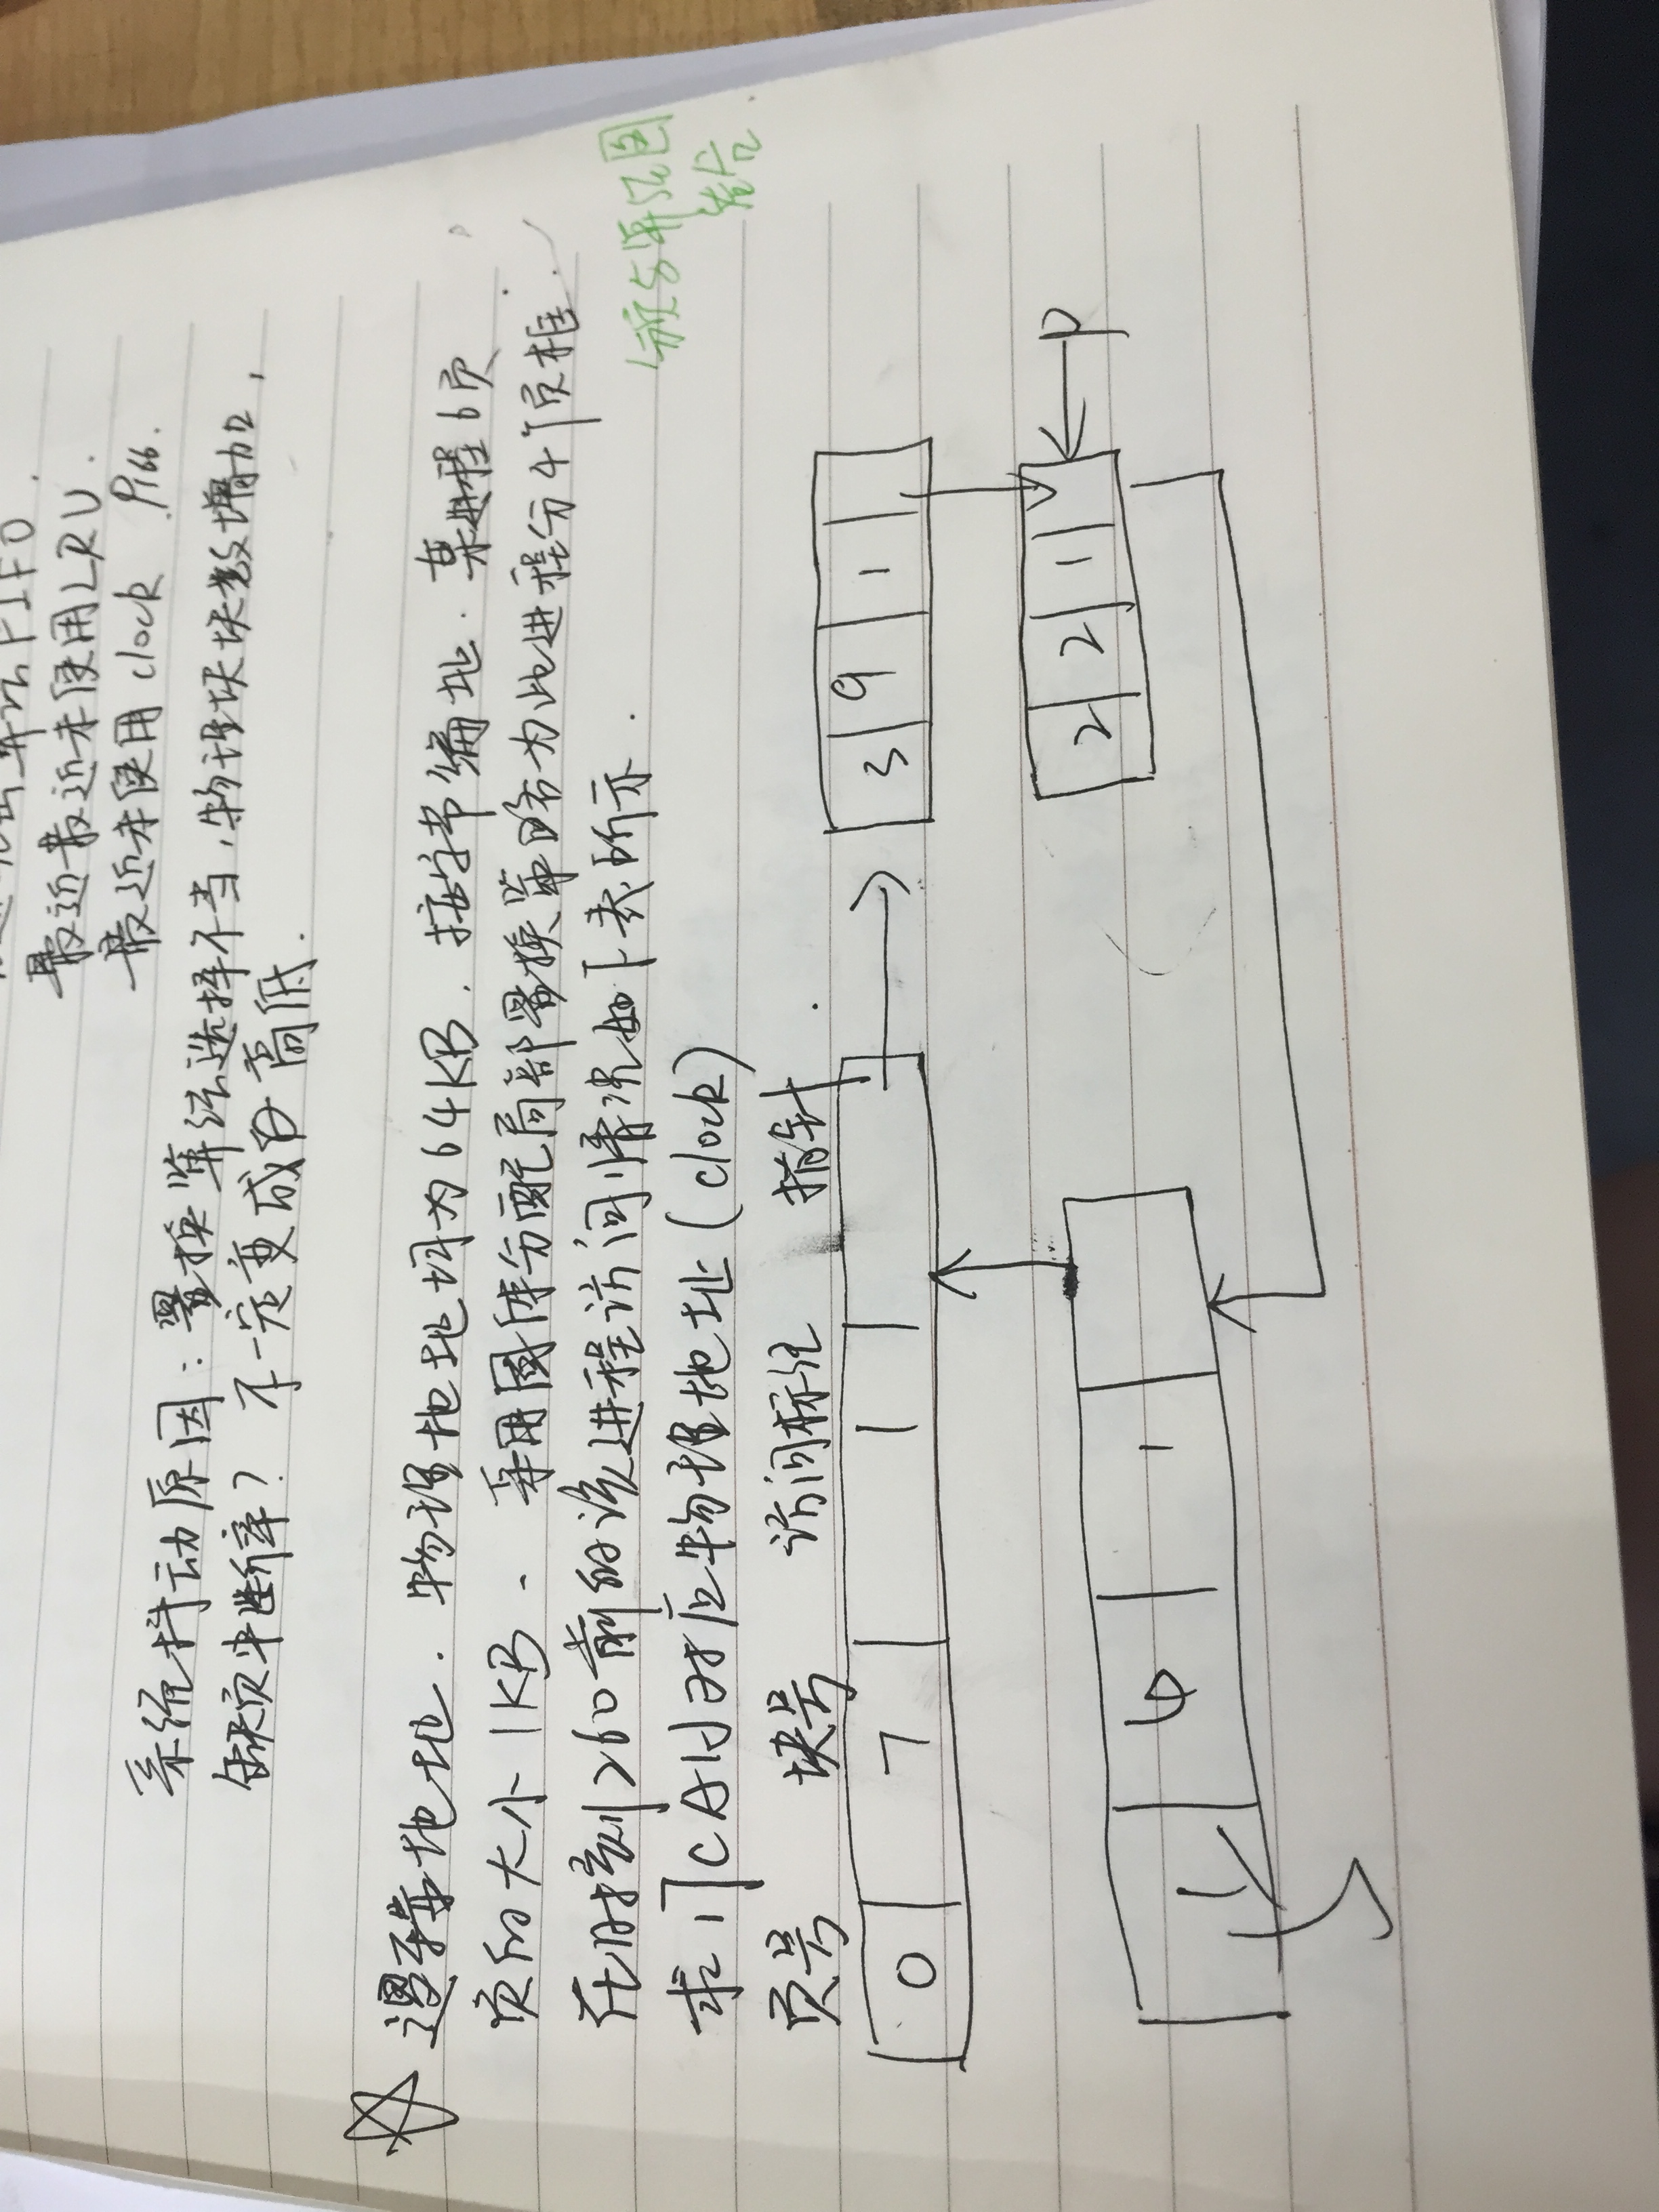 FIFO
最近最近未使用LRU.
最近未使用 clock P166.
系统抖动原因:置换算法选择不当,物理块块数增加,
缺页中断率? 不一定变成D 高低.
逻辑地址.物理地址均为64KB.按字节编址.某进程6页
页的大小1KB、采用固定分配局部置换策略为此进程分4个页框.
在时刻260前的该进程访问情况如下表所示.
求17CAH对应物理地址(clock)
分页与算法图
结合
页号 块号 访问标记 指针
0 7 1
3 9 1
2 2 1
P
4 1